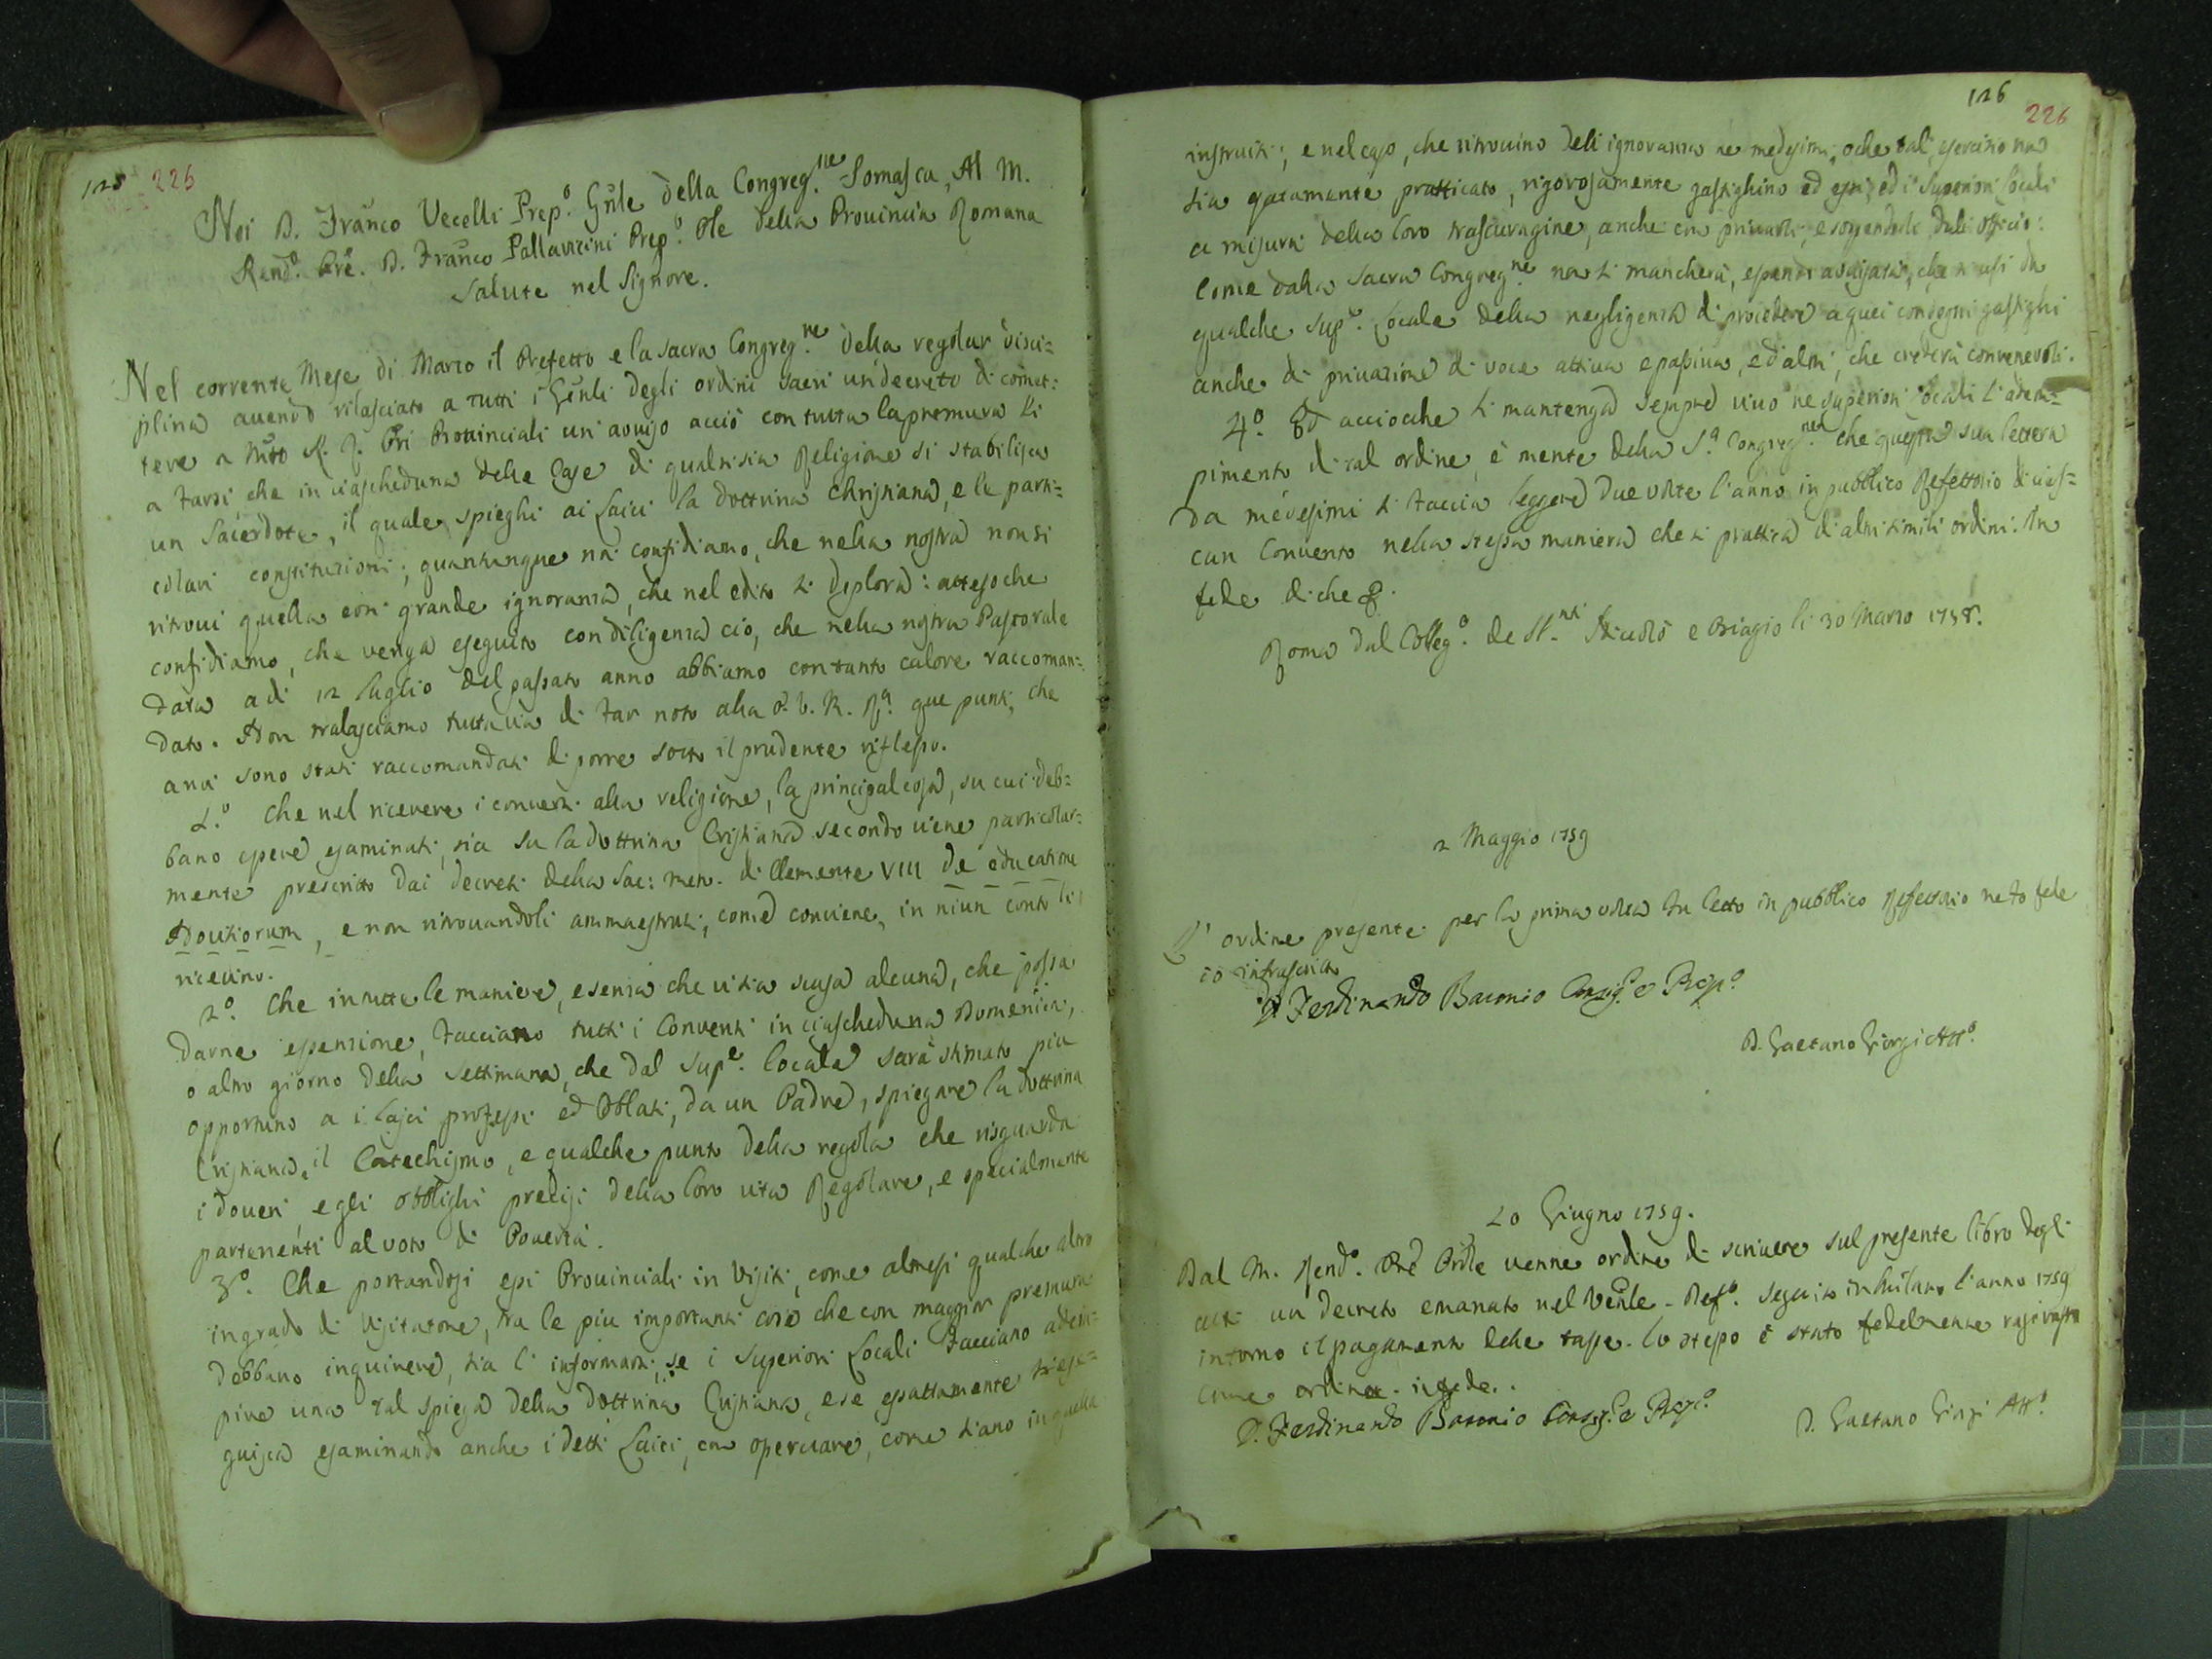 125 225
Noi D. Franco Vecelli Prep.o Gñle della Congreg.ne Somasca, Al M.
Rend.o Prẽ. D. Franco Pallavicini Prep.o Ple della Provincia Romana
Salute nel Signore.
Nel corrente Mese di Marzo il Prefetto e la sacra Congreg.ne della regolar disci=
plina avendo rilasciato a tutti i Gẽnli degli ordini sacri un decreto di comet:
tere a PP. Provinciali un' avviso acciò con tutta la premura si
a farsi che in ciascheduna delle Case di qualsisia Religione si stabilisca
un Sacerdote, il quale spieghi ai Laici la dottrina christiana, e le parti=
colari constituzioni; quantunque noi confidiamo, che nella nostra non si
ritrovi quella così grande ignoranza, che nel edito si deplora: attesoche
confidiamo, che venga eseguito con diligenza ciò, che nella nostra Pastorale
data a di 12 luglio del passato anno abbiamo con tanto calore raccoman=
dato. Non tralasciamo tuttavia di far noto alla P. V. R. que punti, che
a noi sono stati raccomandati di porre sotto il prudente riflesso.
1.o Che nel ricevere i conversi alla religione, la principal cosa, su cui deb=
bano essere esaminati, sia su la dottrina Cristiana secondo viene particolar=
mente prescritto dai decreti della Sac: mem. di Clemente VIII de educatione
Novitiorum, e non ritrovandoli ammaestrati, come conviene, in niun conto li
ricevino.
2.o Che in tutte le maniere, e senza che visia scusa alcuna, che possa
darne esenzione, facciano tutti i Conventi in ciascheduna Domenica,
o altro giorno della Settimana, che dal Sup.e locale sarà stimato piu
opportuno a i laici professi ed Oblati, da un Padre, spiegare la dottrina
Cristiana, il Catechismo, e qualche punto della regola che risguarda
i doveri, e gli obblighi precisi della loro vita Regolare, e specialmente
partenenti al voto di Povertà.
3.o Che portandosi essi Provinciali in Visita, come altresi qualche altro
in grado di Visitatore, tra le piu importanti cose che con maggior premura
debbano inquirere, sia l' informarsi, se i Superiori Locali facciano adem=
pire una tal spiega della dottrina Cristiana, e se esattamente si ese=
guisca esaminando anche i detti Laici, con osservare, come siano in quella
126
226
instruiti; e nel caso, che ritrovino dell' ignoranza ne medesimi, o che tal esercizio non
sia esatamente pratticato, rigorosamente gastighino ed essi, ed i Superiori locali
a misura della loro trascuragine, anche con privarli, e sospenderli dall' officio:
Come dalla sacra Congreg.ne non si mancherà, essendo avvisata, che si usi da
qualche Sup.e Locale della negligenza di procedere a quei condegni gastighi
anche di privazione di voce attiva e passiva, ed altri, che crederà convenevoli.
4.o Ed accioche si mantenga sempre vivo ne superiori locali l' adem=
pimento di tal ordine, è mente della S.a Congreg.ne che questa sua lettera
da medesimi si faccia leggere due volte l' anno in pubblico Refettorio di cias=
cun Convento nella stessa maniera che si prattica di altri simili ordini. In
fede di che &.
Roma dal Colleg.o de SS.nti Niccolò e Biagio li 30 Marzo 1758.
2 Maggio 1759
L' ordine presente per la prima volta fu letto in pubblico Refettorio ne fo fede
io infrascritto
D. Ferdinando Baronio Consig.e e Prep.o
D. Gaetano Giorgi Att.o
20 Giugno 1759.
Dal M. Rend.o Prẽ Prõle venne ordine di scrivere sul presente libro degli
atti un decreto emanato nel Ven. Def.o seguito in Milano l' anno 1759
intorno il pagamento delle tasse. Lo stesso è stato fedelmente registrato
come ordina. in fede.
D. Ferdinando Baronio Consig.e e Prep.o
D. Gaetano Giorgi Att.o